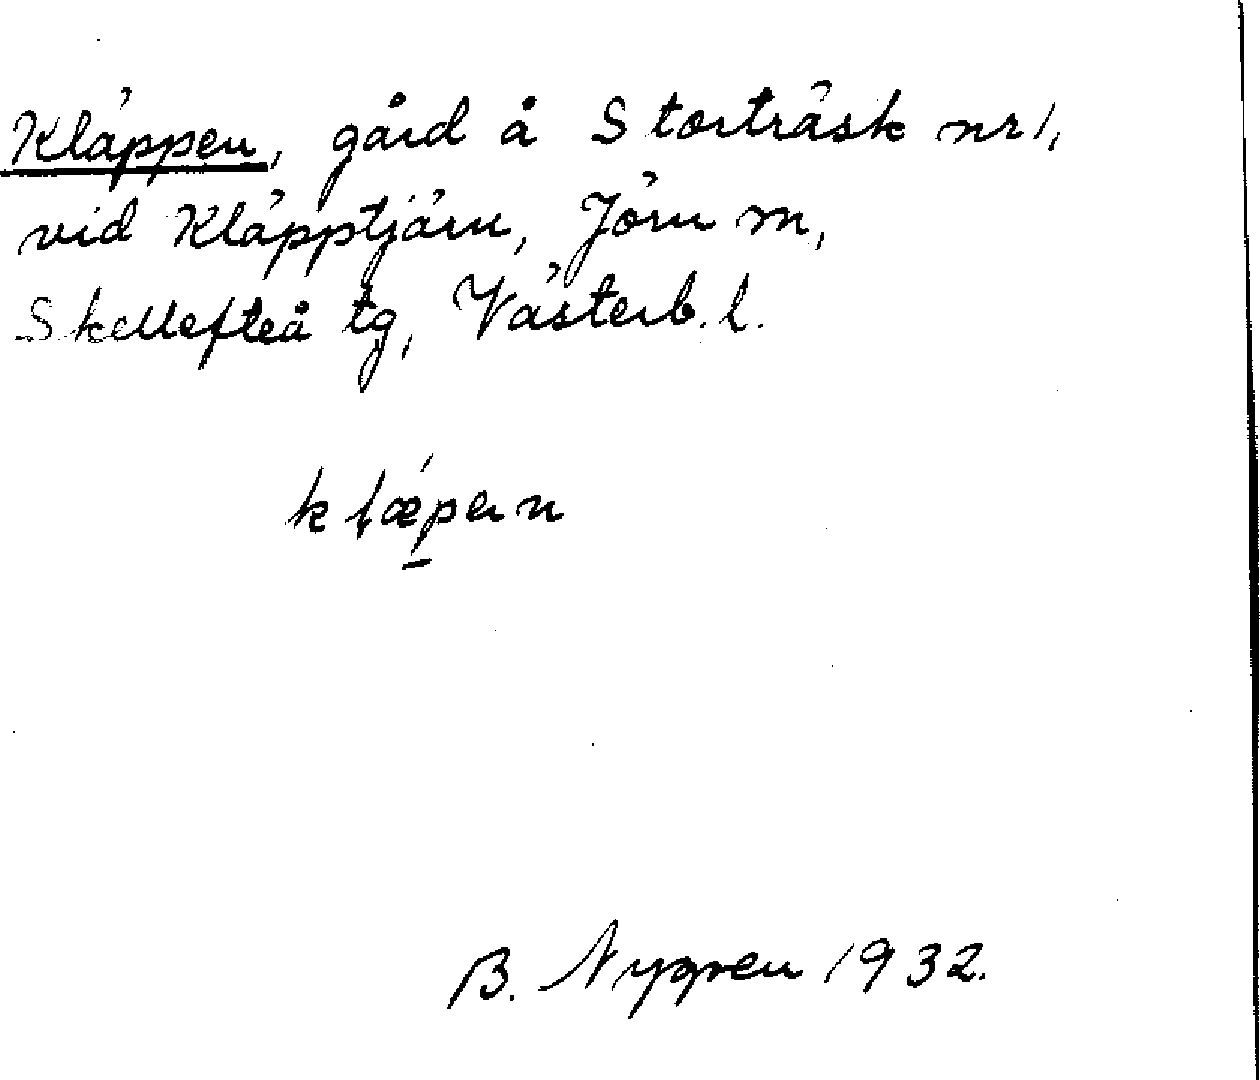 Kläppen, gård å Storträsk nr 1,
vid Kläpptjärn, Jörn m,
Skellefteå tg, Västerb. l.
klæ´pen
B. Nygren 1932.